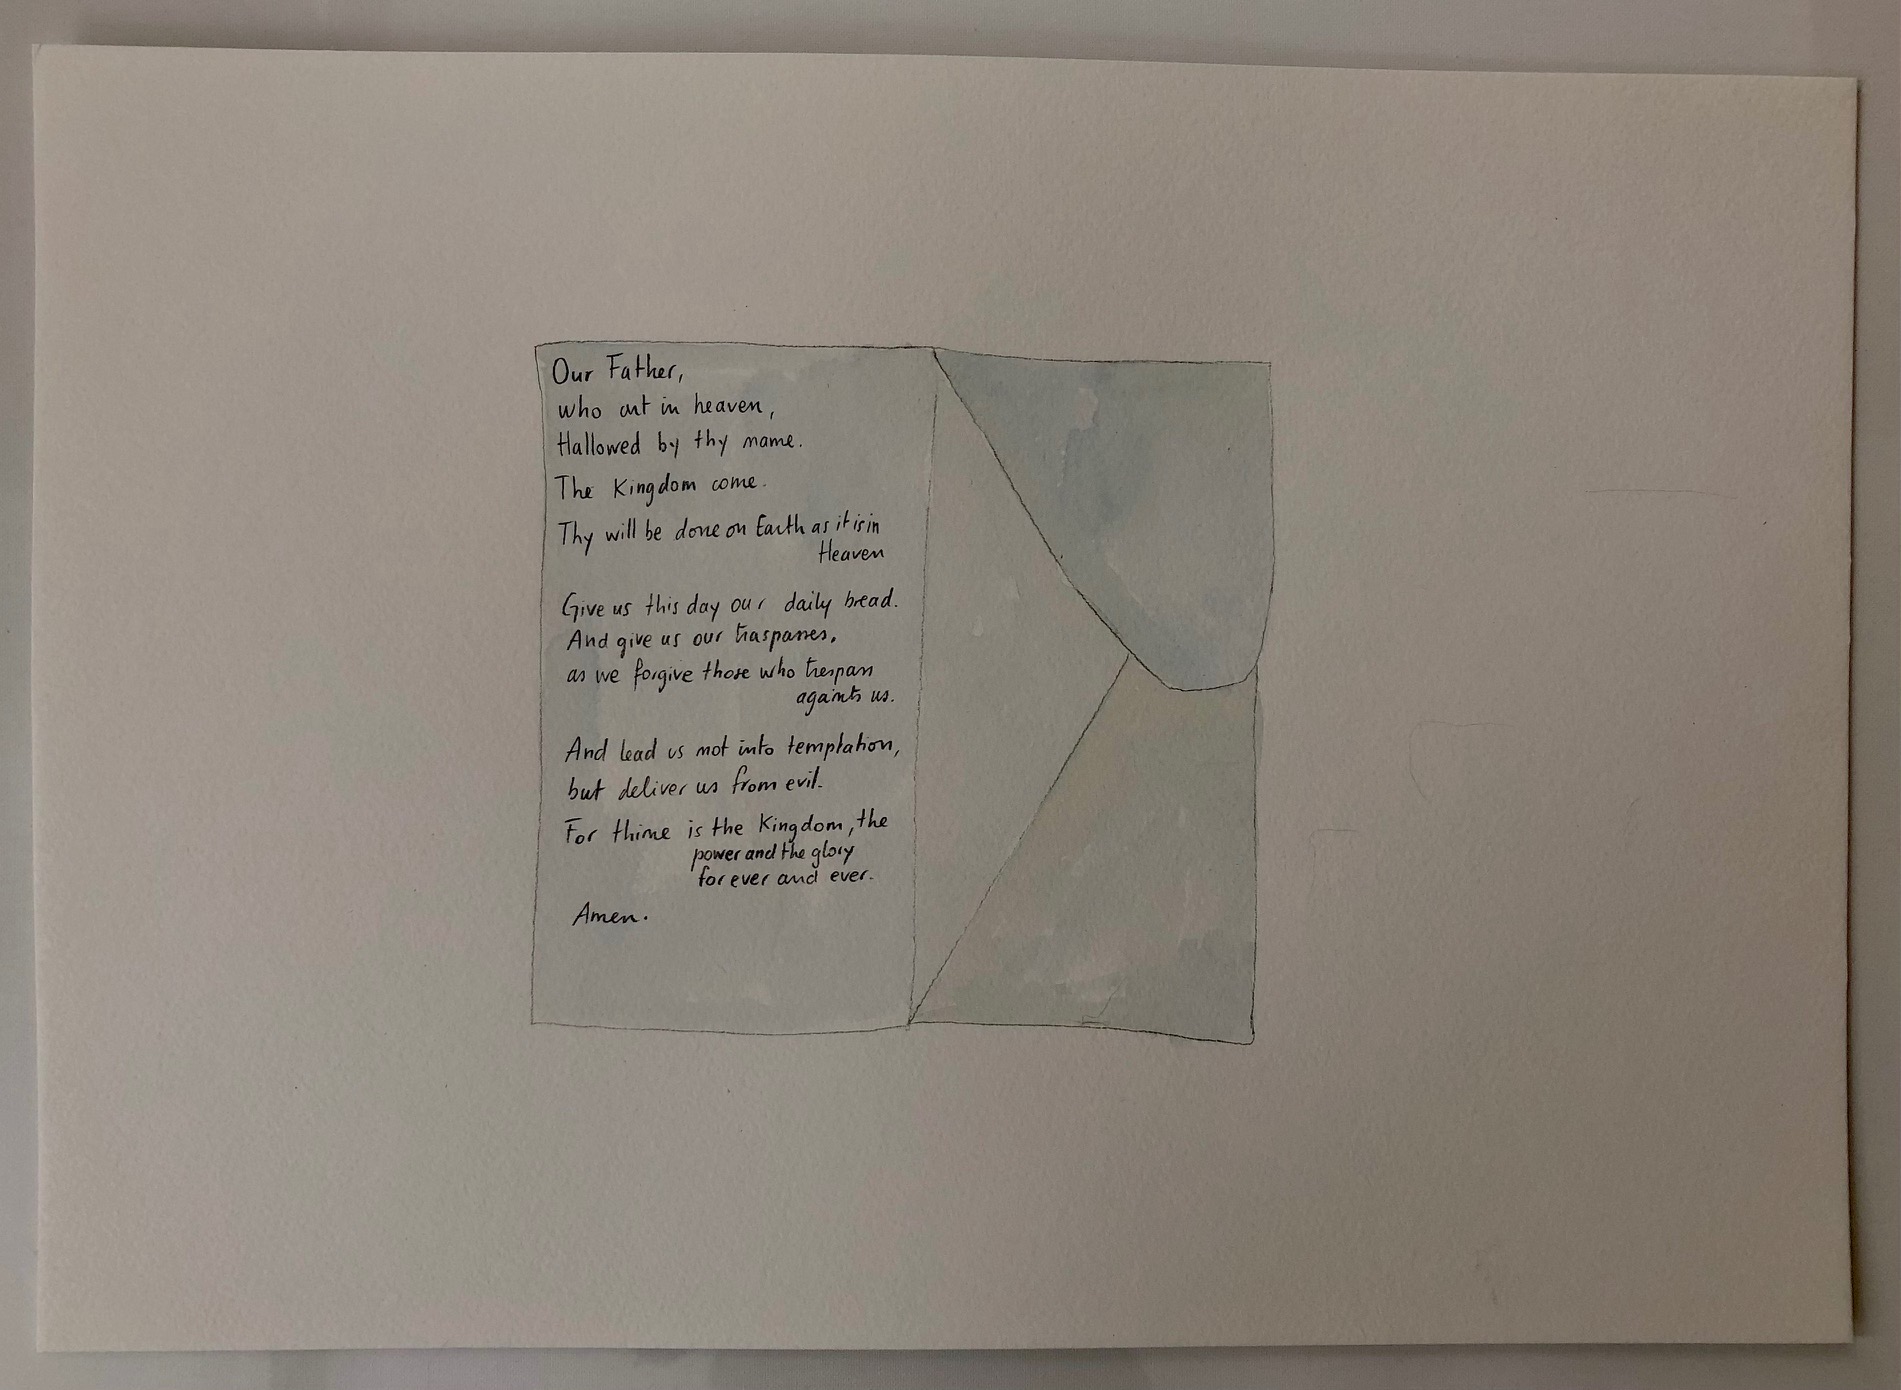 Our Father,
who art in heaven,
Hallowed by thy name.
The Kingdom come.
Thy will be done on Earth as it is in
Heaven
Give us this day our daily bread.
And give us our traspasses,
as we forgive those who trespass
againts us.
And lead us not into temptation,
but deliver us from evil.
For thine is the Kingdom, the
power and the glory
for ever and ever.
Amen.